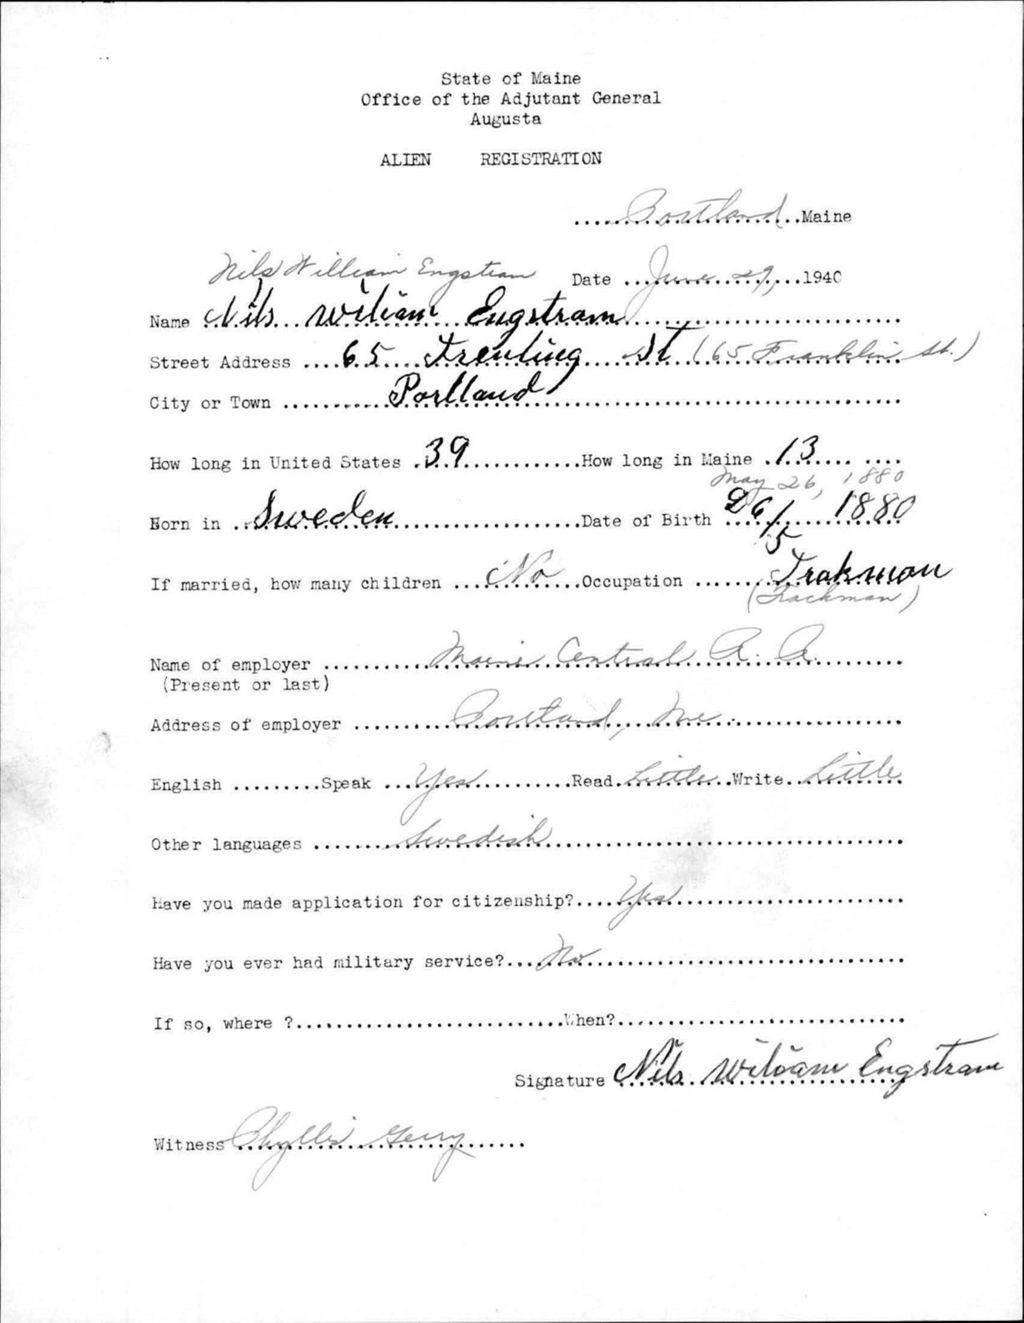 State of Maine
Office of the Adjutant General
Augusta
ALIEN REGISTRATION
Portland Maine
Nils William Engstram Date June 29, 1940
Name Nils William Engstram
Street Address 65 Frenling St (65 Franklin St.)
City or Town Portland
How long in United States 39 How long in Maine 13
May 26, 1880
Born in Sweden Date of Birth 26/5 1880
If married, how many children No Occupation Trakman
(Trackman)
Name of employer Maine Central R. R.
(Present or last)
Address of employer Portland, Me.
English Speak Yes Read Little Write Little
Other languages Swedish
Have you made application for citizenship? Yes
Have you ever had military service? No
If so, where ? When?
Signature Nils William Engstram
Witness Phyllis Gerry